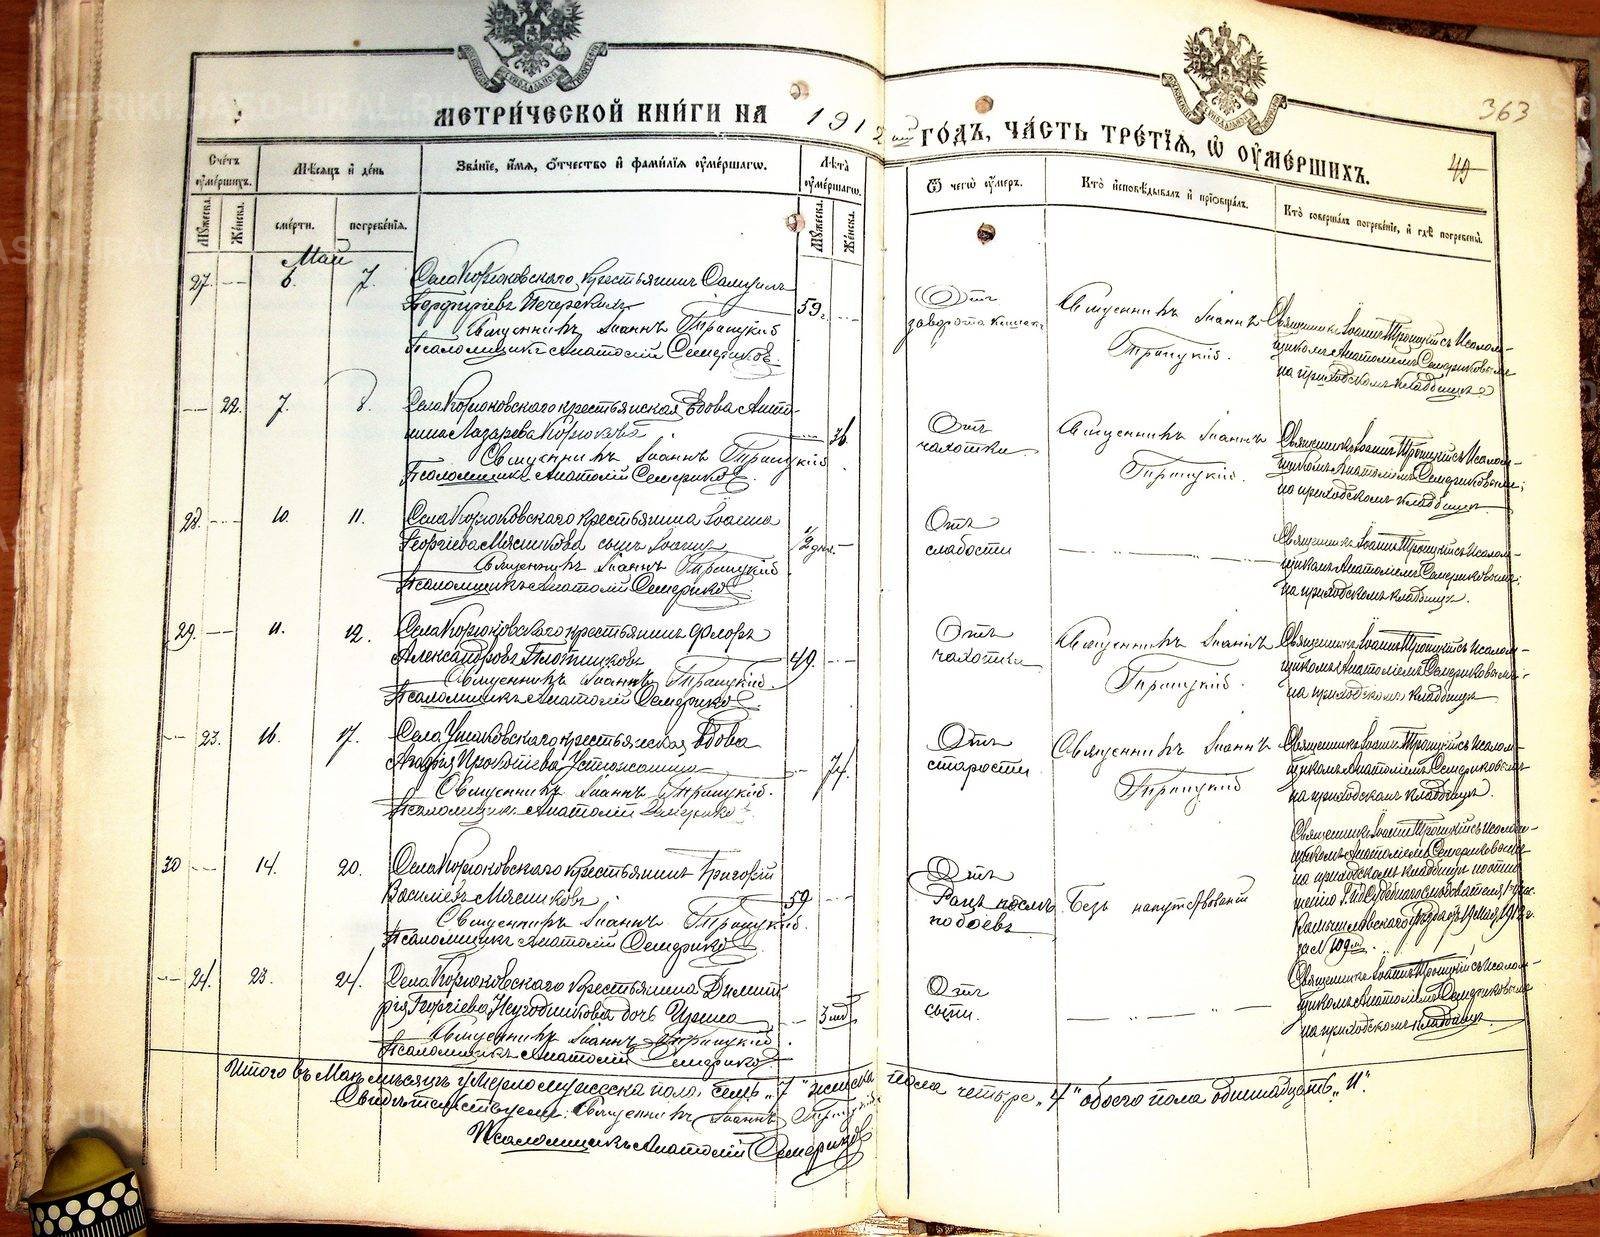 МЕТРИ́ЧЕСКОЙ КНИ́ГИ НА 1912 ый ГО́ДЪ, ЧА́СТЬ ТРЕ́ТІЯ, Ѡ ОУМЕ́РШИХЪ.
363
49
Сче́тъ оумéршихъ.
Мѣсяцъ и день
Зва́ніе, и́мя, о́тчество и фами́лія оумéршагѡ.
Лѣта оумéршагѡ.
Ѿ чегѡ̀ оу́меръ.
Кто̀ исповѣ́дывалъ и пріобща́лъ.
Кто̀ соверша́лъ погребе́ніе, и гдѣ̀ погребены̀.
Мꙋ́жеска.
Же́нска.
сме́рти.
погребе́нія.
Мꙋ́жеска.
Же́нска.
Май
27. 6. 7.
Села Корюковскаго крестьянинъ Самуилъ
Порфирьевъ Печеркинъ
59 г.
Священникъ Іоаннъ Троицкій
Псаломщикъ Анатолій Семериков.
Отъ
заворота кишекъ
Священникъ Іоаннъ
Троицкій.
Священникъ Іоаннъ Троицкій съ псалом-
щикомъ Анатоліемъ Семериковымъ
на приходскомъ кладбищѣ
22. 7. 8.
Села Корюковскаго крестьянская вдова Анто-
нина Лазарева Корюкова
Священникъ Іоаннъ Троицкій
Псаломщикъ Анатолій Семериков.
Отъ
чахотки
Священникъ Іоаннъ
Троицкій.
Священникъ Іоаннъ Троицкій съ псалом-
щикомъ Анатоліемъ Семериковымъ;
на приходскомъ кладбищѣ.
28. 10. 11.
Села Корюковскаго крестьянина Іоанна
Георгіева Мясникова сынъ Іоаннъ
1/2 дня.
Священникъ Іоаннъ Троицкій
Псаломщикъ Анатолій Семериков
Отъ
слабости
Священникъ Іоаннъ Троицкій съ псалом-
щикомъ Анатоліемъ Семериковымъ;
на приходскомъ кладбищѣ.
29. 11. 12.
Села Корюковскаго крестьянинъ Флоръ
Александровъ Плотниковъ
49.
Священникъ Іоаннъ Троицкій.
Псаломщикъ Анатолій Семериков.
Отъ
чахотки
Священникъ Іоаннъ
Троицкій.
Священникъ Іоаннъ Троицкій съ псалом-
щикомъ Анатоліемъ Семериковымъ.
на приходскомъ кладбищѣ
23. 16. 17.
Села Ушаковскаго крестьянская вдова
Агафія Прокопіева Устюжанина
74.
Священникъ Іоаннъ Троицкій.
Псаломщикъ Анатолій Семериков
Отъ
старости
Священникъ Іоаннъ
Троицкій
Священникъ Іоаннъ Троицкій съ псалом-
щикомъ Анатоліемъ Семериковымъ
на приходскомъ кладбищѣ.
30 14. 20.
Села Корюковскаго крестьянинъ Григорій
Василіевъ Мясниковъ
59
Священникъ Іоаннъ Троицкій.
Псаломщикъ Анатолій Семериков
Отъ
Ранъ послѣ
побоевъ
Безъ напутствованій
Священникъ Іоаннъ Троицкій съ псалом-
щикомъ Анатоліемъ Семериковымъ
на приходскомъ кладбищѣ
Судебнаго Слѣдователя
Камышловскаго уѣзда отъ 19 Мая 1912 г.
за № 109
24. 23. 24.
Села Корюковскаго крестьянина Димит-
рія Георгіева Негодникова дочь Ирина
Священникъ Іоаннъ Троицкій
Псаломщикъ Анатолій Семериков
Отъ
сыпи.
Священникъ Іоаннъ Троицкій съ псалом-
щикомъ Анатоліемъ Семериковымъ
на приходскомъ кладбищѣ
Итого въ Маѣ мѣсяцѣ умерло мужеска пола семь „7" женска пола четыре „4" обоего пола одиннадцать „11".
Свидѣтельствуемъ: Священникъ Іоаннъ Троицкій
Псаломщикъ Анатолій Семериков